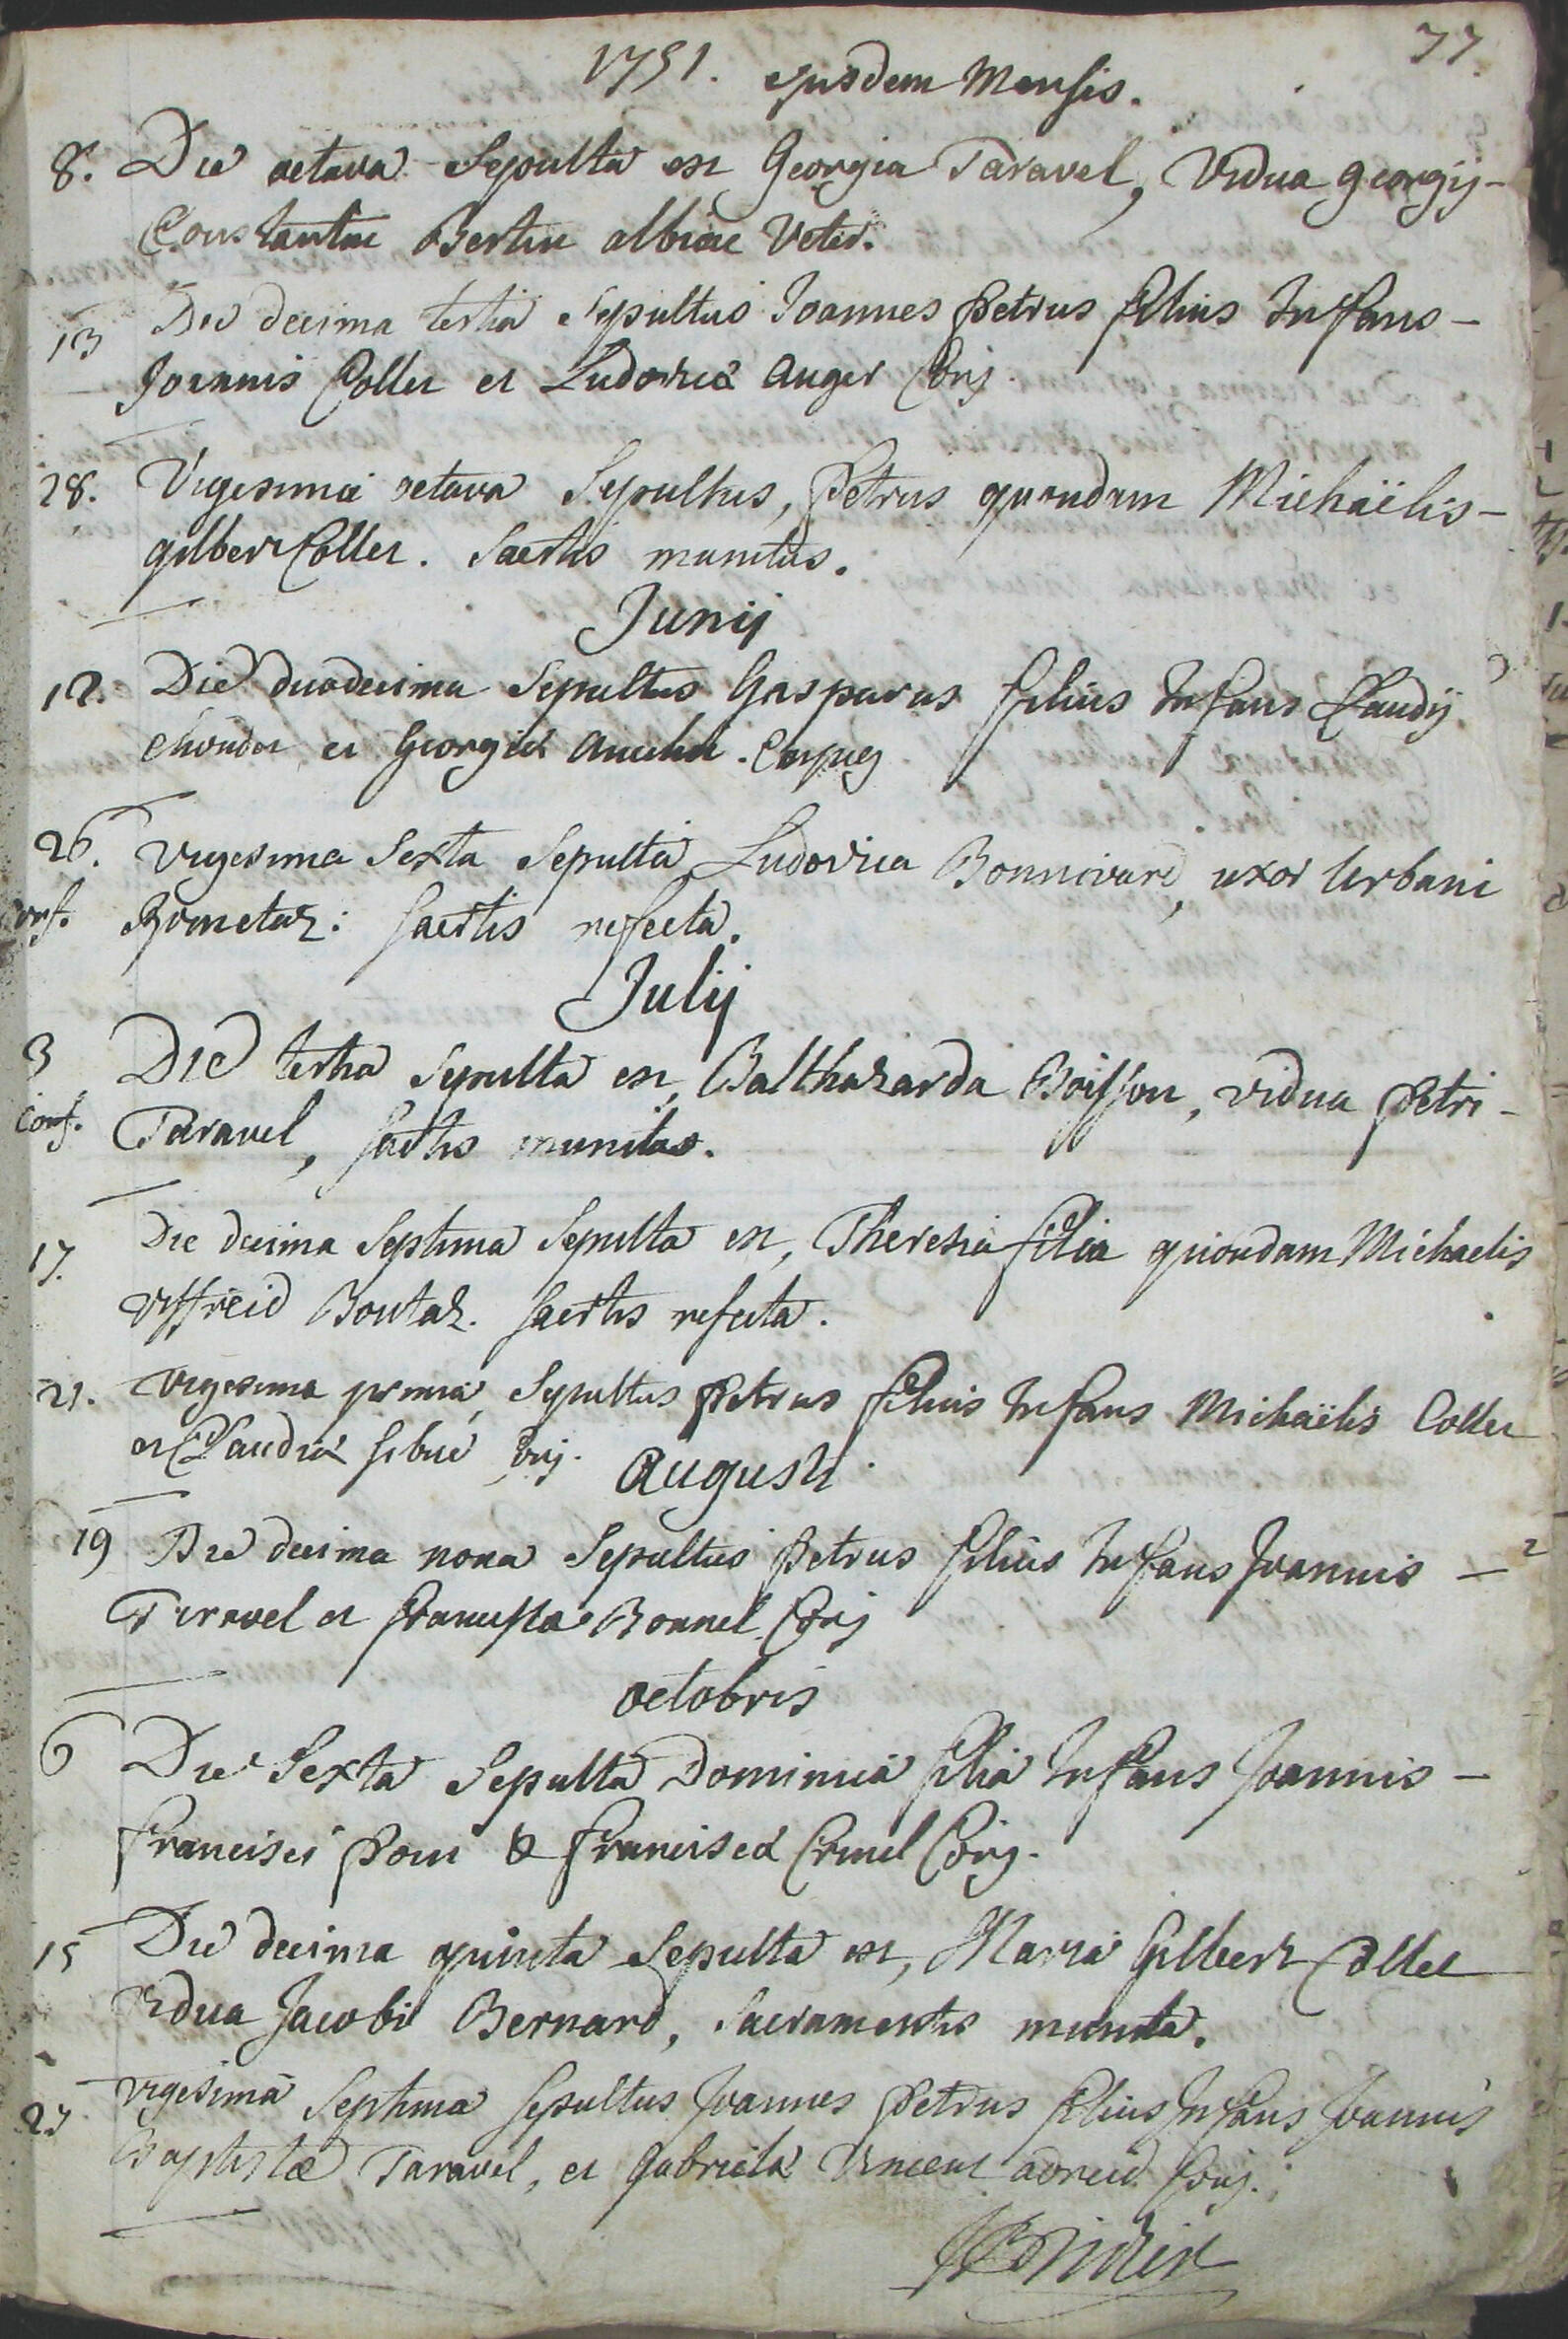 1751. ejusdem Mensis. 77.
8. Die octava Sepulta est Georgia Taravel, Vidua georgij -
Constantin Bertin albiac Veter.
13 Die decima tertia Sepultus Joannes Petrus filius Infans -
Joannis Collet et Ludovicæ Auger Conj.
28. Vigesima octava Sepultus, Petrus quondam Michaëlis -
gilbert Collet. Sactis munitus.
Junij
12. Die duodecima Sepultus Gasparus filius Infans Claudij
et Georgiæ Conjug
26. Vigesima Sexta Sepulta Ludovica Bonnivard, uxor Urbani
conf. : sactis refecta.
Julij
3 Die tertia Sepulta est, Balthazarda Boisson, vidua Petri -
conf. Taravel, sactis munita.
17. Die decima Septima Sepulta est, Theresia filia quondam Michaelis
Viffreid Boutaz. sactis refecta.
21. Vigesima prima, Sepultus Petrus filius Infans Michaëlis Collet
et Claudiæ Sibué Conj.
Augusti
19 Die decima nona Sepultus Petrus filius Infans Joannis - 2
Taravel et Bonnel Conj
octobris
6 Die Sexta Sepulta Dominica filia Infans Joannis -
Francisci & Franciscæ Conj.
15 Die decima quinta Sepulta est, Maria Gilbert Collet
vidua Jacobi Bernard, Sacramentis munita.
27 Vigesima Septima Sepultus Joannes Petrus filius Infans Joannis
Baptistæ Taravel, et Gabrielæ Vincent Conj.